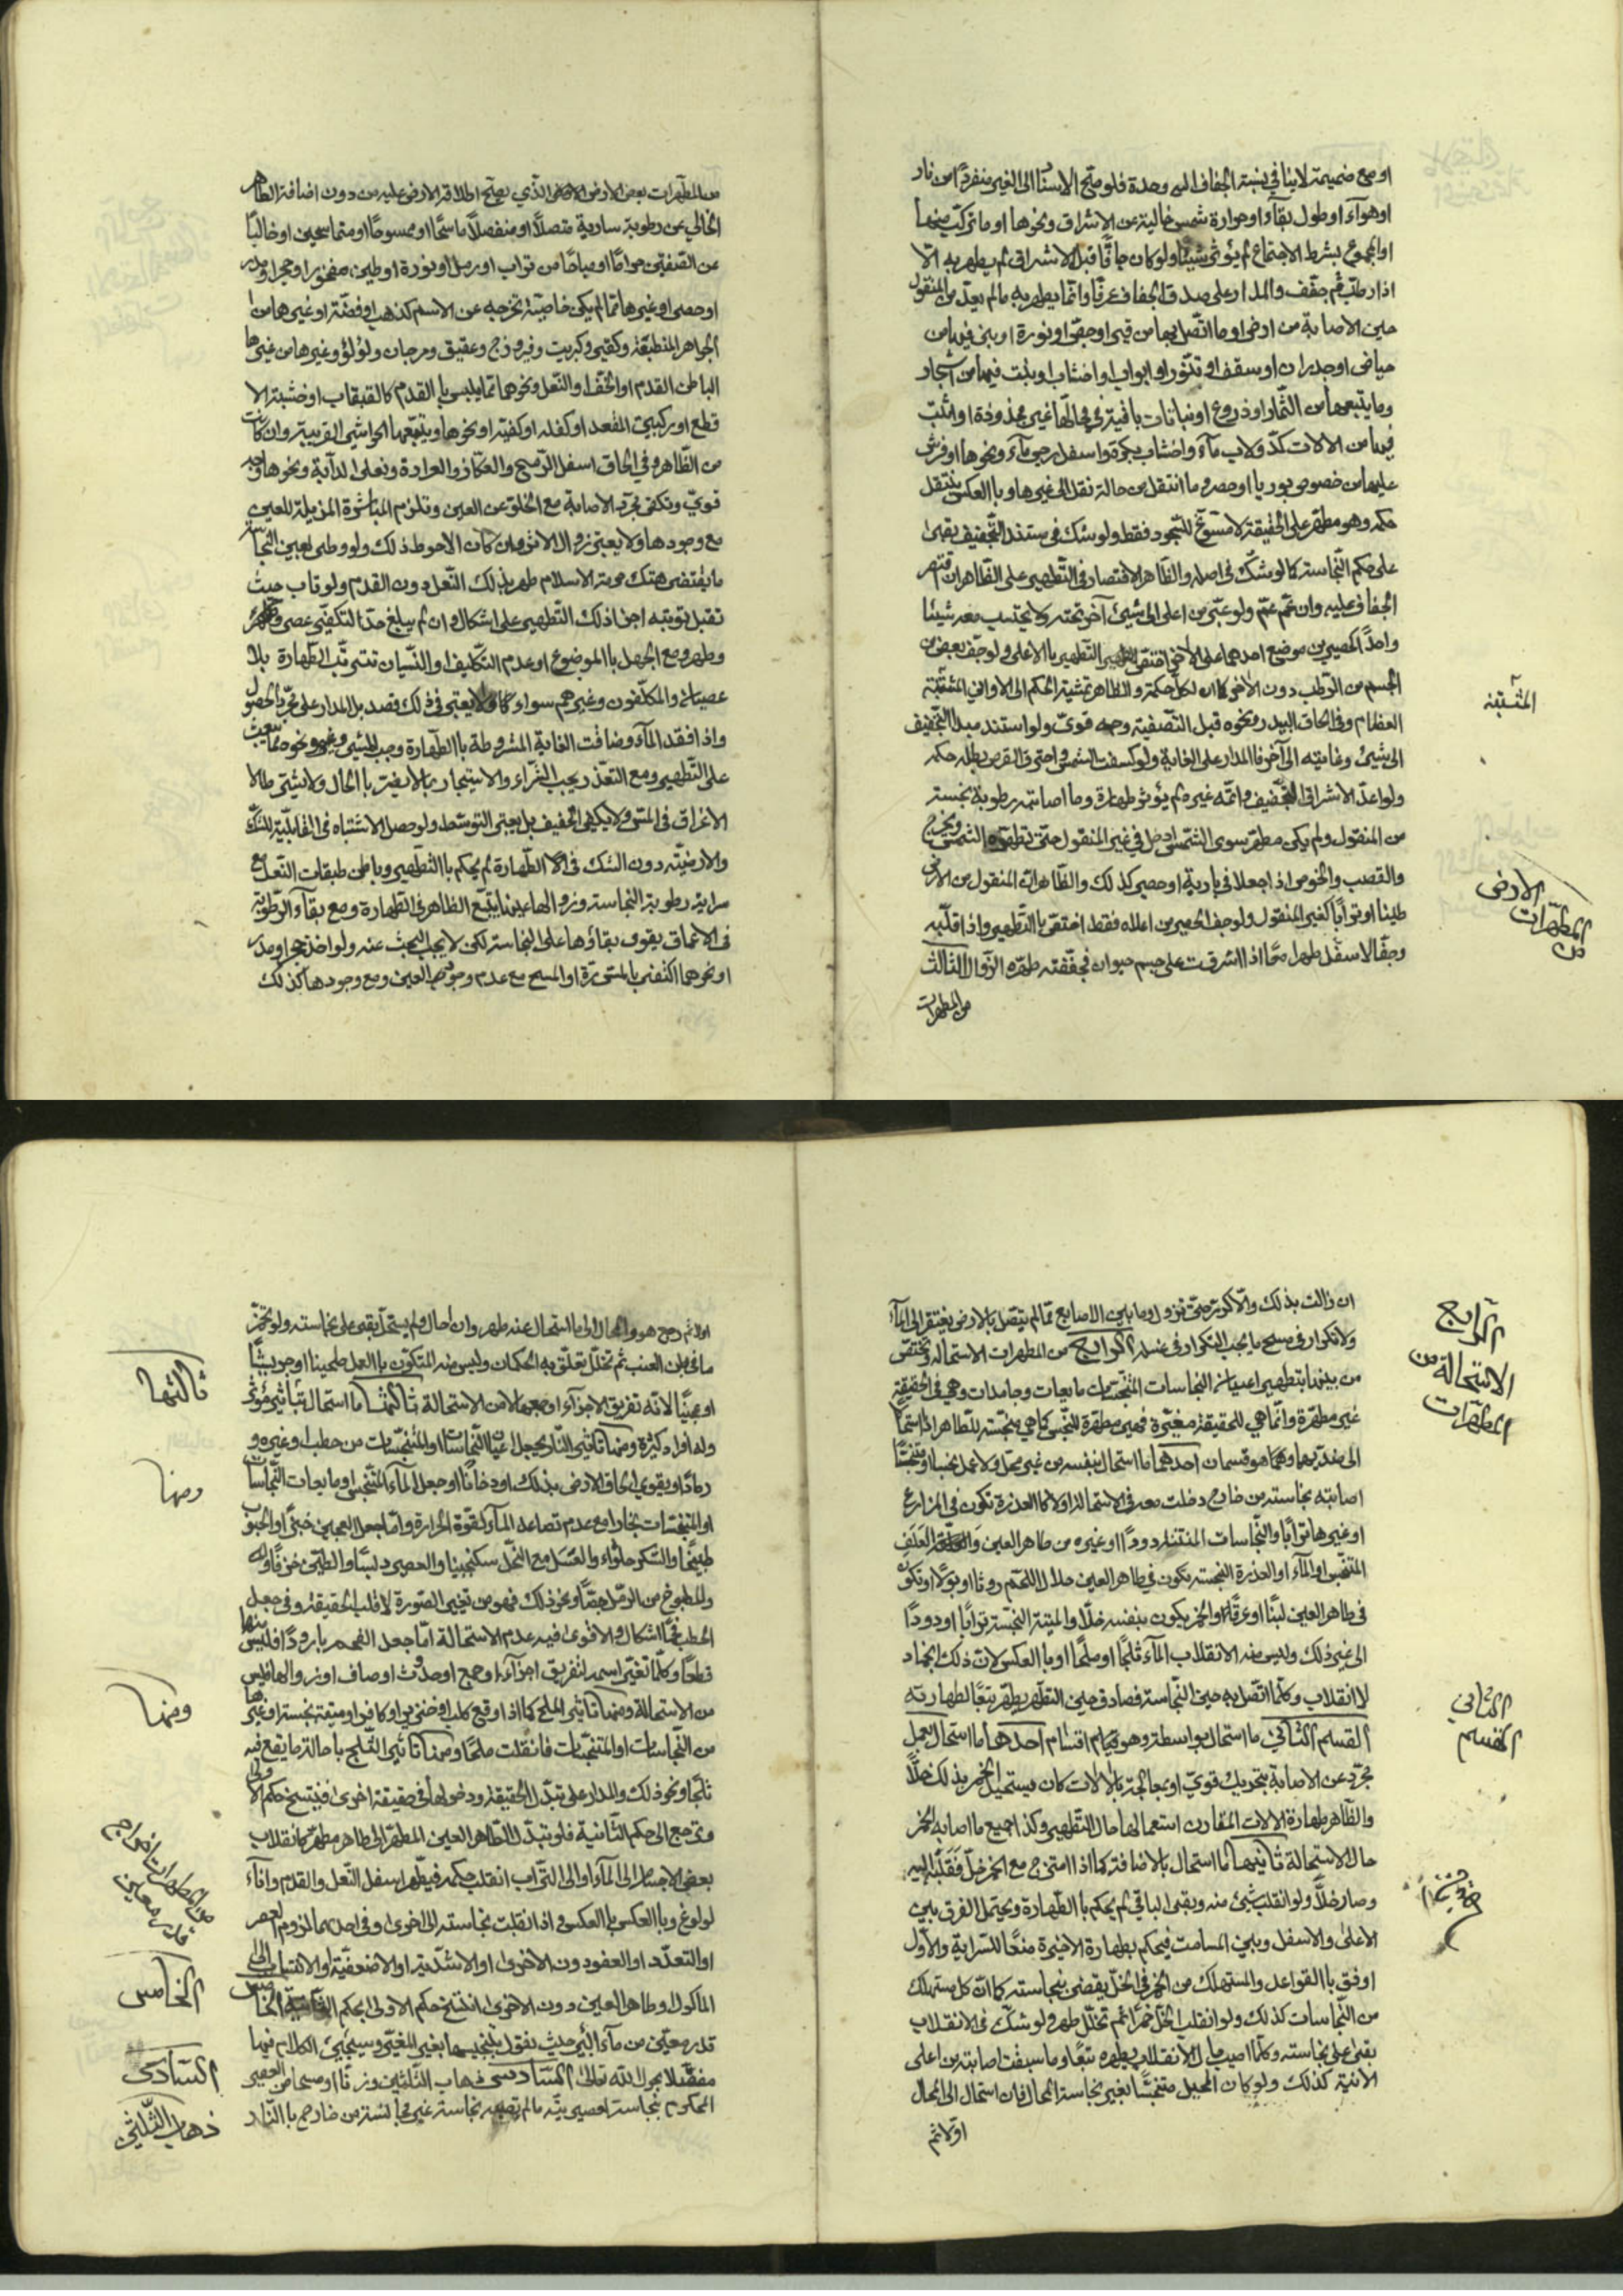 او مع ضميمة لا ينافي نسبة الجفاف اليه وحدة فلو صحّ الاستناد الى الغير منفرداً من نار
او هوآء او طول بقآء او حرارة شمس خالية عن الاشراق ونحوها او ما تركّب منها
او المجموع بشرط الاجتماع لم يؤثر شيئا ولو كان جافّا قبل الاشراق لم يطهر به الّا
اذا رطب ثم جفّف والمدار على صدق الجفاف عرفا وانّما يطهر به ما لم يعدّ من المنقول
حين الاصابة من ارض او ما اتّصل بها من قير او جصّ او نورة او بنى فيها من
حياض او جدران او سقف او تنّور او ابواب او اخشاب او نبت فيها من اشجار
وما يتبعها من الثّمار او زروع او نباتات باقية في محالّها غير مجذوذة او اثبت
فيها من الالات كدولاب مآء واخشاب بكرة واسفل رحى مآء ونحوها او فرش
عليها من خصوص بوريا او حصر وما انتقل من حالة نقل الى غيرها وبالعكس ينتقل
حكمه وهو مطهّر على الحقيقة لا مسوّغ للسّجود فقط ولو شك في مستند التّجفيف بقى
على حكم النّجاسة كما لو شكّ في اصله والظّاهر الاقتصار في التّطهير على الظّاهر ان اقتصر
الجفاف عليه وان عمّ عمّ ولو عبّر من اعلى الى شيء آخر تحته ولا يحتسب معه شيئا
واحداً كحصيرين موضوع احدهما على الاخر اختصّ التّطهير بالاعلى ولو جفّ بعض من
الجسم من الرّطب دون الاخر كان لكلّ حكمه والظاهر تمشية الحكم الى الاواني المثبتة
المثبتة
العظام وفي الحاق البيدر ونحوه قبل التّصفية وجه قويّ ولو استند مبدأ التّجفيف
الى شيئ وغايته الى آخر فالمدار على الغاية ولو كسفت الشمس واحترق القرص بطل حكمه
ولو اعدّ الاشراق للتّجفيف واتمّه غيره لم يؤثر طهارة وما اصابته رطوبة نجسة
من المنقول ولم يكن مطهّر سوى الشّمس ادخل في غير المنقول حتى تطهّره الشّمس ويخرج
والقصب والخوص اذا جعلا في بارية او حصير كذلك والظّاهر ان المنقول من الارض
الارض
من المطهّرات
طينا او ترابا كغير المنقول ولو جفّ الحصير من اعلاه فقط اختصّ بالتّطهير واذا قلّبه
وجفّ الاسفل طهرا معا واذا اشرقت على جسم حيوان فجفّفته طهّره الزّوال الثّالث
من المطهرات
من المطهّرات بعض الارض الذي يصحّ اطلاق الارض عليه من دون اضافة الطّاهر
الخالي عن رطوبة سارية متصلاً او منفصلاً ماسحًا او ممسوحًا او متماسحين او خاليا
عن الصّفتين حراما او مباحا من تراب او رمل او نورة او طين مفخور او حجر او مدر
او حصى او غيرها ممّا لم يكن خاصيّة تخرجه عن الاسم كذهب او فضّة او غيرهما من
الجواهر المنطبعة وكقير وكبريت وفيروزج وعقيق ومرجان ولؤلؤ وغيرها من غيرها
الباطن القدم او الخفّ او النّعل ونحوها ممّا يلبس بالقدم كالقبقاب او خشبة الا
قطع او ركبتي المقعد او كفله او كفيه او نحوها ويتبعها الحواشي القريبة وان كانت
من الظّاهر وفي الحاق اسفل الرّمح والعكاز والعرادة ونعل الدآبة ونحوها وجه
قويّ وتكفي مجرّد الاصابة مع الخلوّ عن العين وتلزم المباشرة المزيلة للعين
مع وجودها ولا يعتبر زوال الاثر وان كان الاحوط ذلك ولو وطى بعين النّجاسة
ما يقتضى هتك حرمة الاسلام طهر بذلك النّعل دون القدم ولو تاب حيث
تقبل توبته اجزأ ذلك التّطهير على اشكال وان لم يبلغ حدّ التكفير عصى وطهر
وطهر ومع الجهل بالموضوع او عدم التكليف او النّسيان تترتّب الطّهارة بلا
عصيان والمكلّفون وغيرهم سواء ولا يعتبر في ذلك قصد بل المدار على مجرّد الحصول
واذا فقد المآء وضاقت الغاية المشروطة بالطّهارة وجب المشي ونحوه ممّا يبعث
على التّطهير ومع التعذّر يجب الشّرآء والاستيجار بما لا يضرّ بالحال ولا يشترط
الاغراق في المسّ ولا يكفي الخفيف بل يعتبر التوسّط ولو حصل الاشتباه في القابليّة للشكّ
والارضيّة دون الشك في الطّهارة لم يحكم بالتّطهير وباطن طبقات النّعل مع
سراية رطوبة النجاسة وزوالها عينا يتبع الظاهر في الطّهارة ومع بقآء الرّطوبة
في الاعماق يقوى بقاؤها على النجاسة لكن لا يجب البحث عنه ولو اخذ حجرا ومدر
او نحوهما اكتفى بالمسّ تارة او المسح مع عدم وجود العين ومع وجودها كذلك
ان زالت بذلك والّا كرّر حتى تزول وما بين الاصابع ممّا لم يتصل بالارض يفتقر الى المآء
ولا تكرار في مسح ما يجب التكرار في غسله الرّابع من المطهرات الاستحالة وتختصّ
الرّابع
الاستحالة من
المطهّرات
من بينها بتطهير اعيان النجاسات والمتنجّسات مايعات وجامدات وهي في الحقيقة
غير مطهّرة وانّما هي للحقيقة مغيّرة فهي مطهّرة للنّجس كما هي منجّسة للطّاهر اذا استحال
الى ضدّيهما وهو قسمان احدهما ما استحال بنفسه من غير محلّ ولا عمل نجسا او متنجّسًا
اصابته نجاسة من خارج دخلت معه في الاستحالة اولا كالعذرة تكون في المزارع
او غيرها ترابا والنّجاسات المنتنة دودًا او غيره من طاهر العين والعلف
المتنجّس او المآء او العذرة النجسة تكون في طاهر العين حلال اللّحم روثا او بولا او تكون
في طاهر العين لبنًا او عرقًا والخمر يكون بنفسه خلّا والميتة النجسة ترابا او دودًا
الى غير ذلك وليس منه الانقلاب المآء ثلجًا او ملحًا او بالعكس لانّ ذلك انجماد
لا انقلاب وكلّما اتّصل به حين النّجاسة فصادق حين التطهّر يطهر تبعًا لطهارته
القسم الثّاني ما استحال بواسطة وهو اقسام احدها ما استحال بعمل
الثّاني
القسم
مجرّد عن الاصابة بتحريك قويّ او معالجة بالالات كان يستحيل الخمر بذلك خلًّا
والظّاهر طهارة الالات المقارن استعمالها حال التّطهير وكذا جميع ما اصابه الخمر
حال الاستحالة ثانيها ما استحال بالاضافة كما اذا امتزج مع الخمر خلّ فقلّبه اليه
وصار خلّا ولو انقلب شيئ منه وبقى الباقي لم يحكم بالطّهارة ويحتمل الفرق بين
الاعلى والاسفل وبين المسامت فيحكم بطهارة الاخيرة منعًا للسّراية والاوّل
اوفق بالقواعد والمستهلك من الخمر في الخلّ يقضى بنجاسته كما انّ كل مستهلك
من النّجاسات كذلك ولو انقلب الخلّ خمرًا ثم تخلّل طهر ولو شكّ في الانقلاب
بقى على نجاسته وكلّما اصيب حال الانقلاب يطهر تبعًا وما سبقت اصابته من اعلى
الانية كذلك ولو كان المحيل متنجّسًا بغير نجاسة المحال فان استحال الى المحال
اوّلا ثم
اوّلا ثم رجع هو والمحال الى ما استحال عنه طهر وان احال ولم يستحل بقى على نجاسته ولو تخمّر
ما في باطن العنب ثم تخلّل تعلّق به الحكمان وليس منه المتكوّن بالعمل طحينا او جريشًا
او عجينًا لانّه تفريق الاجزآء او جمعها لا من الاستحالة ثالثها ما استحال بتأثير مؤثر
ثالثها
وله افراد كثيرة ومنها تأثير النّار بجعل اعيان النّجاسات او المتنجّسات من حطب او غيره
ومنها
رمادًا ويقوى الحاق الارض بذلك او دخانًا او جعل المآء المتنجّس او مايعات النّجاسات
او المتنجّسات بخارا مع عدم تصاعد المآء لقوّة الحرارة وامّا جعل العجين خبزًا والحبوب
طبيخًا والسّكر حلوآء والعسل مع الخل سكنجبينا والعصير دبسًا والطّين خزفًا
والمطبوخ من الرّمل جصّا ونحو ذلك فهو من تغيير الصّورة لا قلب الحقيقة وفي جعل
الحطب فحمًا اشكال والاقوى فيه عدم الاستحالة امّا جعل الفحم بارودًا فليس منها
قطعًا وكلّما تغيّر اسمه لتفريق اجزآء او جمع او حدوث اوصاف او زوالها فليس
من الاستحالة ومنها تاثير الملح كما اذا وقع كلب او خنزير او كافر او ميتة نجسة او غيرها
ومنها
من النّجاسات او المتنجّسات فانقلبت ملحًا ومنها تاثير الثّلج باحالة ما يقع فيه
ثلجًا ونحو ذلك والمدار على تبدّل الحقيقة ودخولها في حقيقة اخرى فينسخ حكم الاولى
ويرجع الى حكم الثّانية فلو تبدّل الطّاهر العين المطهّر الى طاهر مطهّر كانقلاب
بعض الاجسام الى المآء او الى التّراب انقلب حكمه فيطهّر اسفل النّعل والقدم واناء
الولوغ وبالعكس بالعكس واذا انقلبت نجاسة الى اخرى وفي احدهما لزوم العصر
او التعدّد او العفو دون الاخرى او الاشدّية او الاضعفيّة او الانتساب الى
المأكول او طاهر العين دون الاخرى انتسخ حكم الاولى بحكم الثّانية الخامس
الخامس
قدر معيّن من مآء البئر حيث نقول بتنجيسها بغير المغيّر وسيجيئ الكلام فيها
مفصّلا بعون اللّه تعالى السّادس ذهاب الثلثين وزنًا او مساحة من العصير
السّادس
المحكوم بنجاسة عصيريّته ما لم تصبه نجاسة غيرها من خارج بالنّار
ذهاب الثّلثين